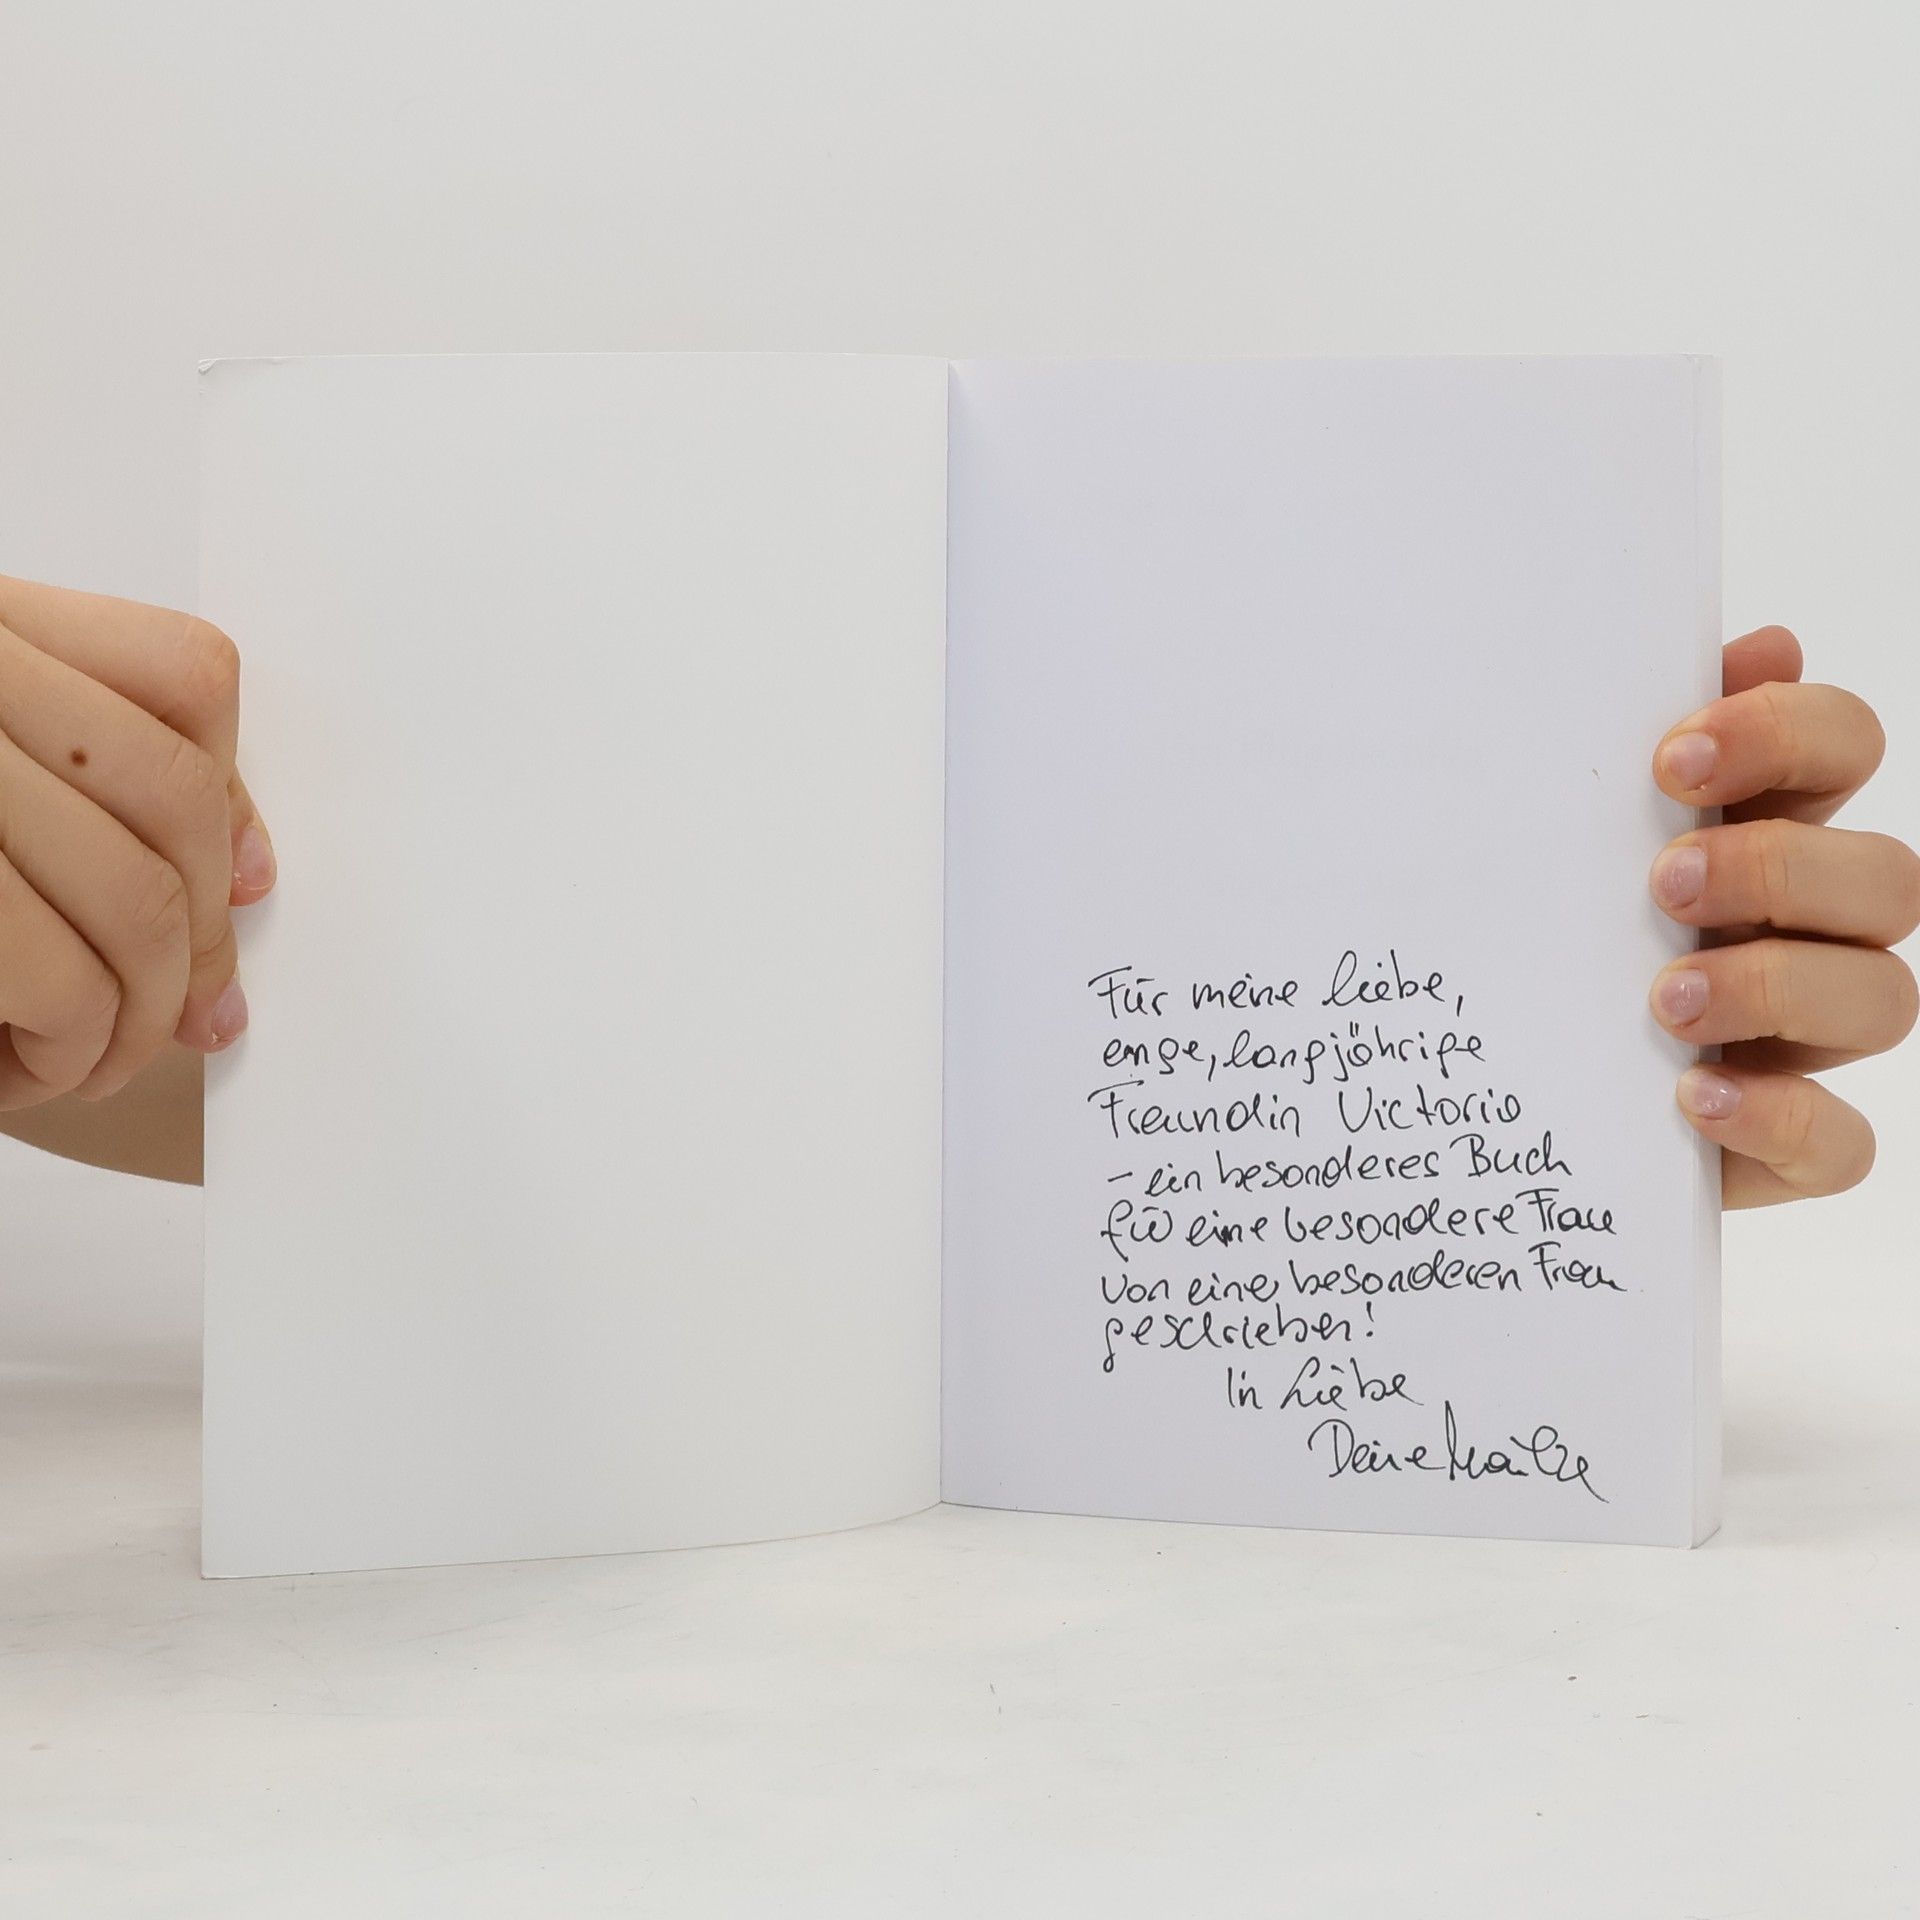 Für meine liebe,
enge, langjährige
Freundin Victoria
- ein besonderes Buch
für eine besondere Frau
von eine besonderen Frau
geschrieben!
In Liebe
Deine